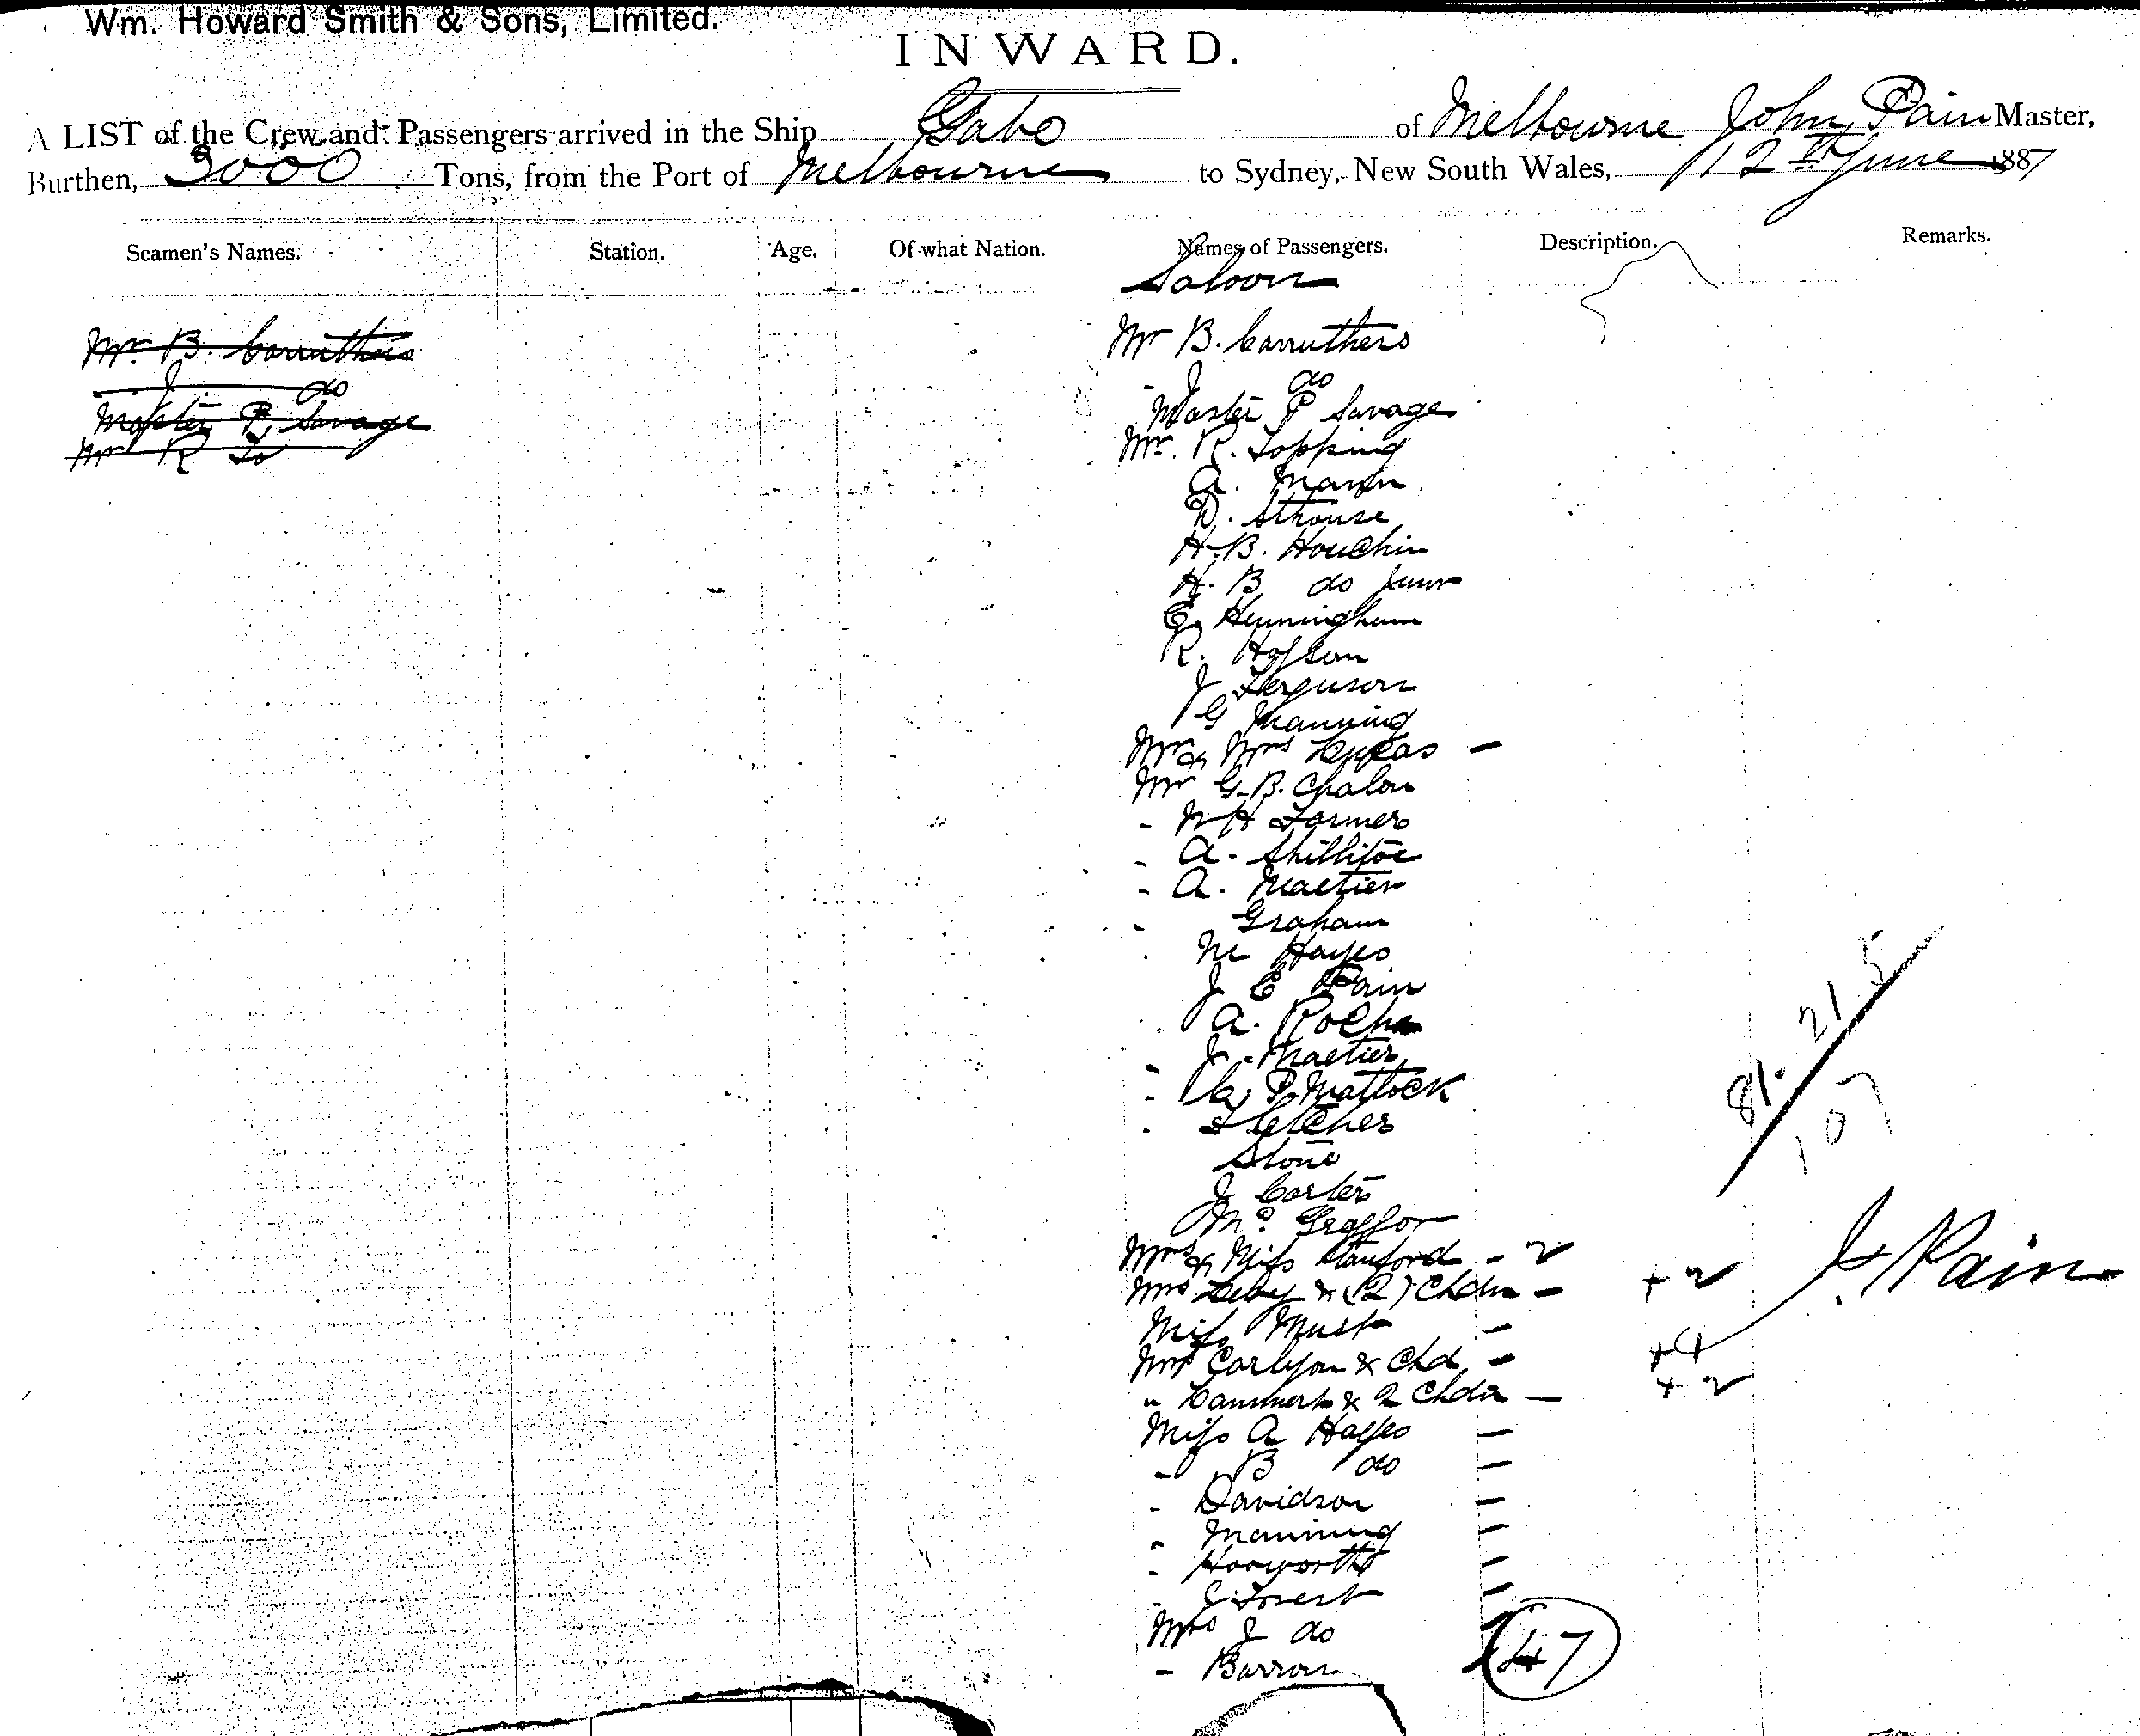 Wm. Howard Smith & Sons, Limited.
INWARD.
A LIST of the Crew and Passengers arrived in the Ship Gabo of Melbourne John Pain Master,
Burthen, 3000 Tons, from the Port of Melbourne to Sydney, New South Wales, 12th June 1887
Seamen's Names. Station. Age. Of what Nation. Names of Passengers. Description. Remarks.
Saloon
Mr B. Carruthers
J do
Master P. Savage
Mr R To
Mr B. Carruthers
- J do
Master P Savage
Mr. R. Topping
A. Mann
D. Sthouse
H. B. Houchin
H. B do Junr
E. Henningham
R. Hopson
J Ferguson
G Manning
Mr & Mrs Lucas -
Mr G. B. Chalon
- W H Farmer
- A. Shillitoe
- A. Mactier
- Graham
M Hayes
J E Pain
A. Roche
- J. Mactier
- C. P. Matlock
- Fletcher
Stone
J Carter
Mc Greggor
Mrs & Miss Stanford - 2
Mrs & (2) Chdn - + 2
Miss Must -
Mrs Carlyon & Chd - + 1
" & 2 Chdn - + 2
Miss A Hayes -
- B do -
- Davidson -
- Manning -
- Haworth -
- J Forest -
Mrs J do
- Barron
47
81. 21 5
107
J. Pain